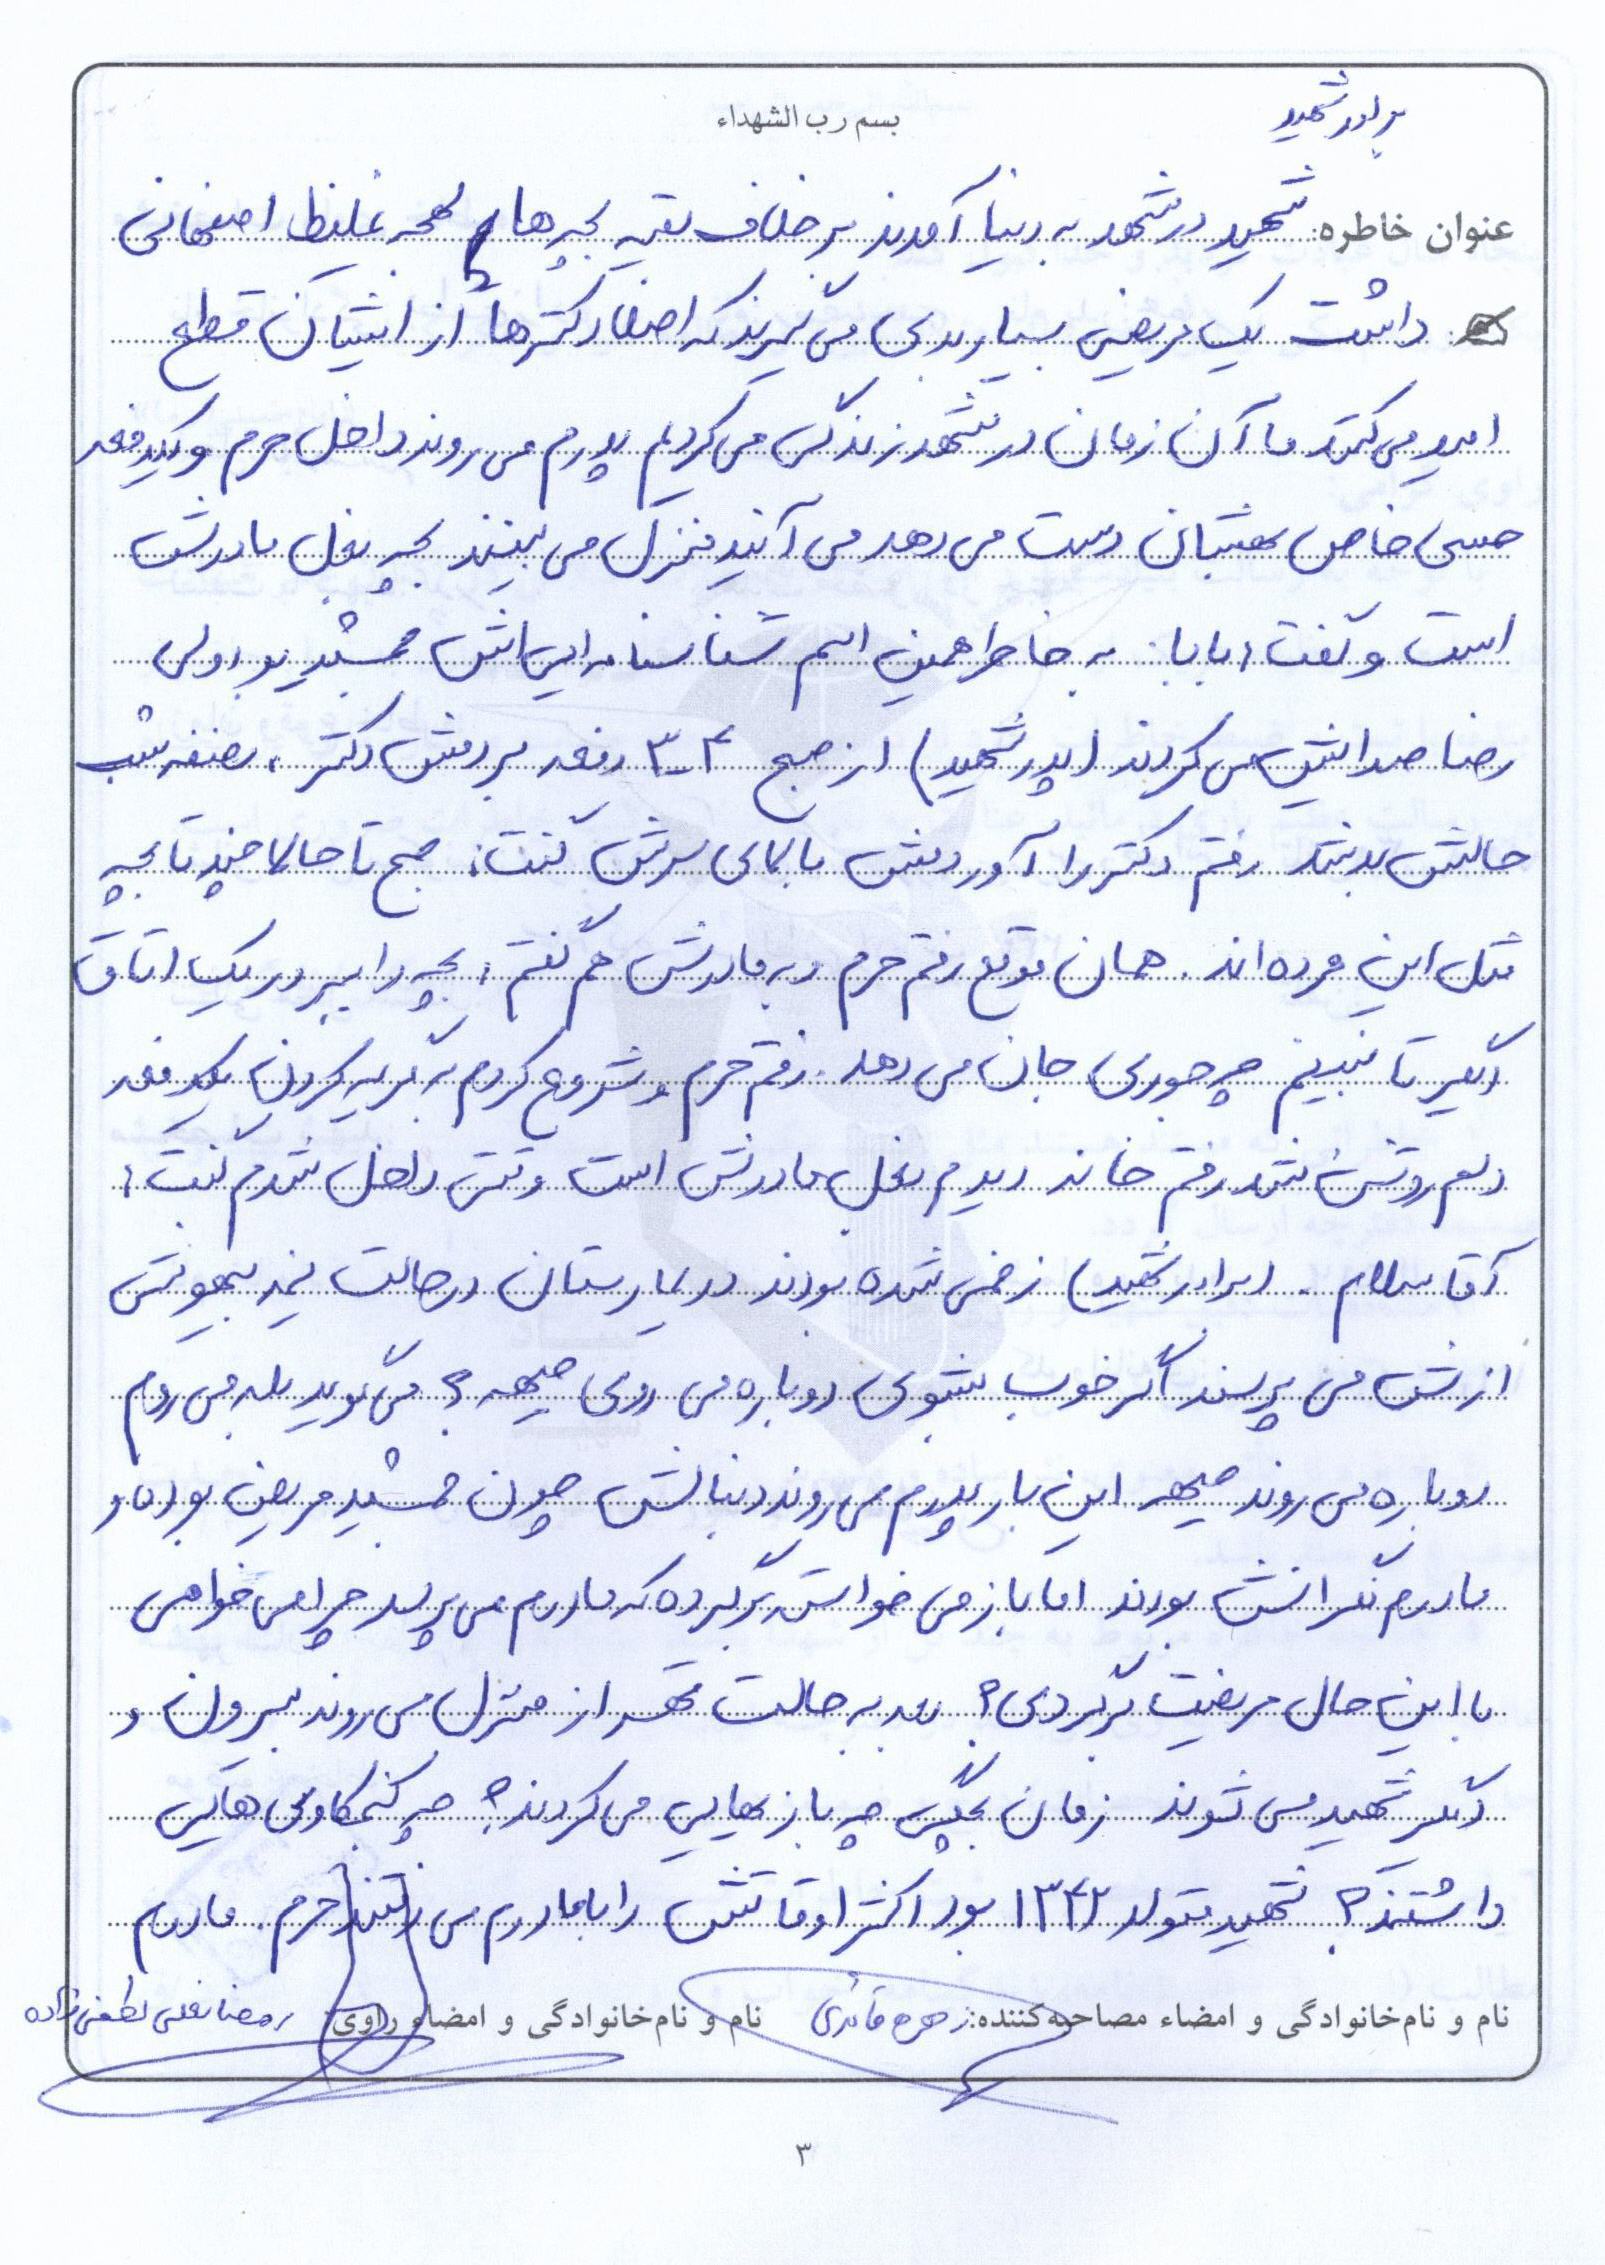 برادر شهید
بسم رب الشهداء
عنوان خاطره: شهید در مشهد به دنیا آمدند بر خلاف بقیه بچه ها لهجه غلیظ اصفهانی
داشت یک مریضی بسیار بدی می گیرند که اصلا دکترها از ایشان قطع
امید می کنند ما آن زمان در مشهد زندگی می کردیم پدرم می روند داخل حرم و یکدفعه
حسی خاص بهشان دست می دهد می آیند منزل می بینند بچه بغل مادرش
است و گفت: بابا. به خاطر همین اسم شناسنامه ایی اش جمشید بود ولی
رضا صدایش می کردند (پدر شهید) از صبح ۴-۳ دفعه بردمش دکتر، نصفه شب
حالش بد شد رفتم دکتر را آوردمش بالای سرش گفت: صبح تا حالا چند تا بچه
مثل این مرده اند. همان موقع رفتم حرم و به مادرش هم گفتم: بچه را ببر در یک اتاق
دیگر تا نبینیم چه جوری جان می دهد. رفتم حرم و شروع کردم به گریه کردن یکدفعه
دلم روشن شد رفتم خانه دیدم بغل مادرش است وقتی داخل شدم گفت:
آقا سلام. (برادر شهید) زخمی شده بودند در بیمارستان در حالت نیمه بیهوش
ازش می پرسند اگر خوب بشوی دوباره می روی جبهه؟ می گوید بله می روم
دوباره می روند جبهه این بار پدرم می روند دنبالش چون جمشید مریض بوده و
مادرم نگرانش بودند اما باز می خواسته برگرده که مادرم می پرسد چرا می خواهی
با این حال مریضیت برگردی؟ بعد به حالت قهر از منزل می روند بیرون و
دیگر شهید می شوند زمان بچگی چه بازیهایی می کردند؟ چه کنجکاوی هایی
داشتند؟ شهید متولد ۱۳۴۲ بود اکثر اوقاتش را با مادرم می رفتند حرم. مادرم
نام و نام خانوادگی و امضاء مصاحبه کننده: زهره قائدی نام و نام خانوادگی و امضاء راوی: رمضانعلی لطفی زاده
۳